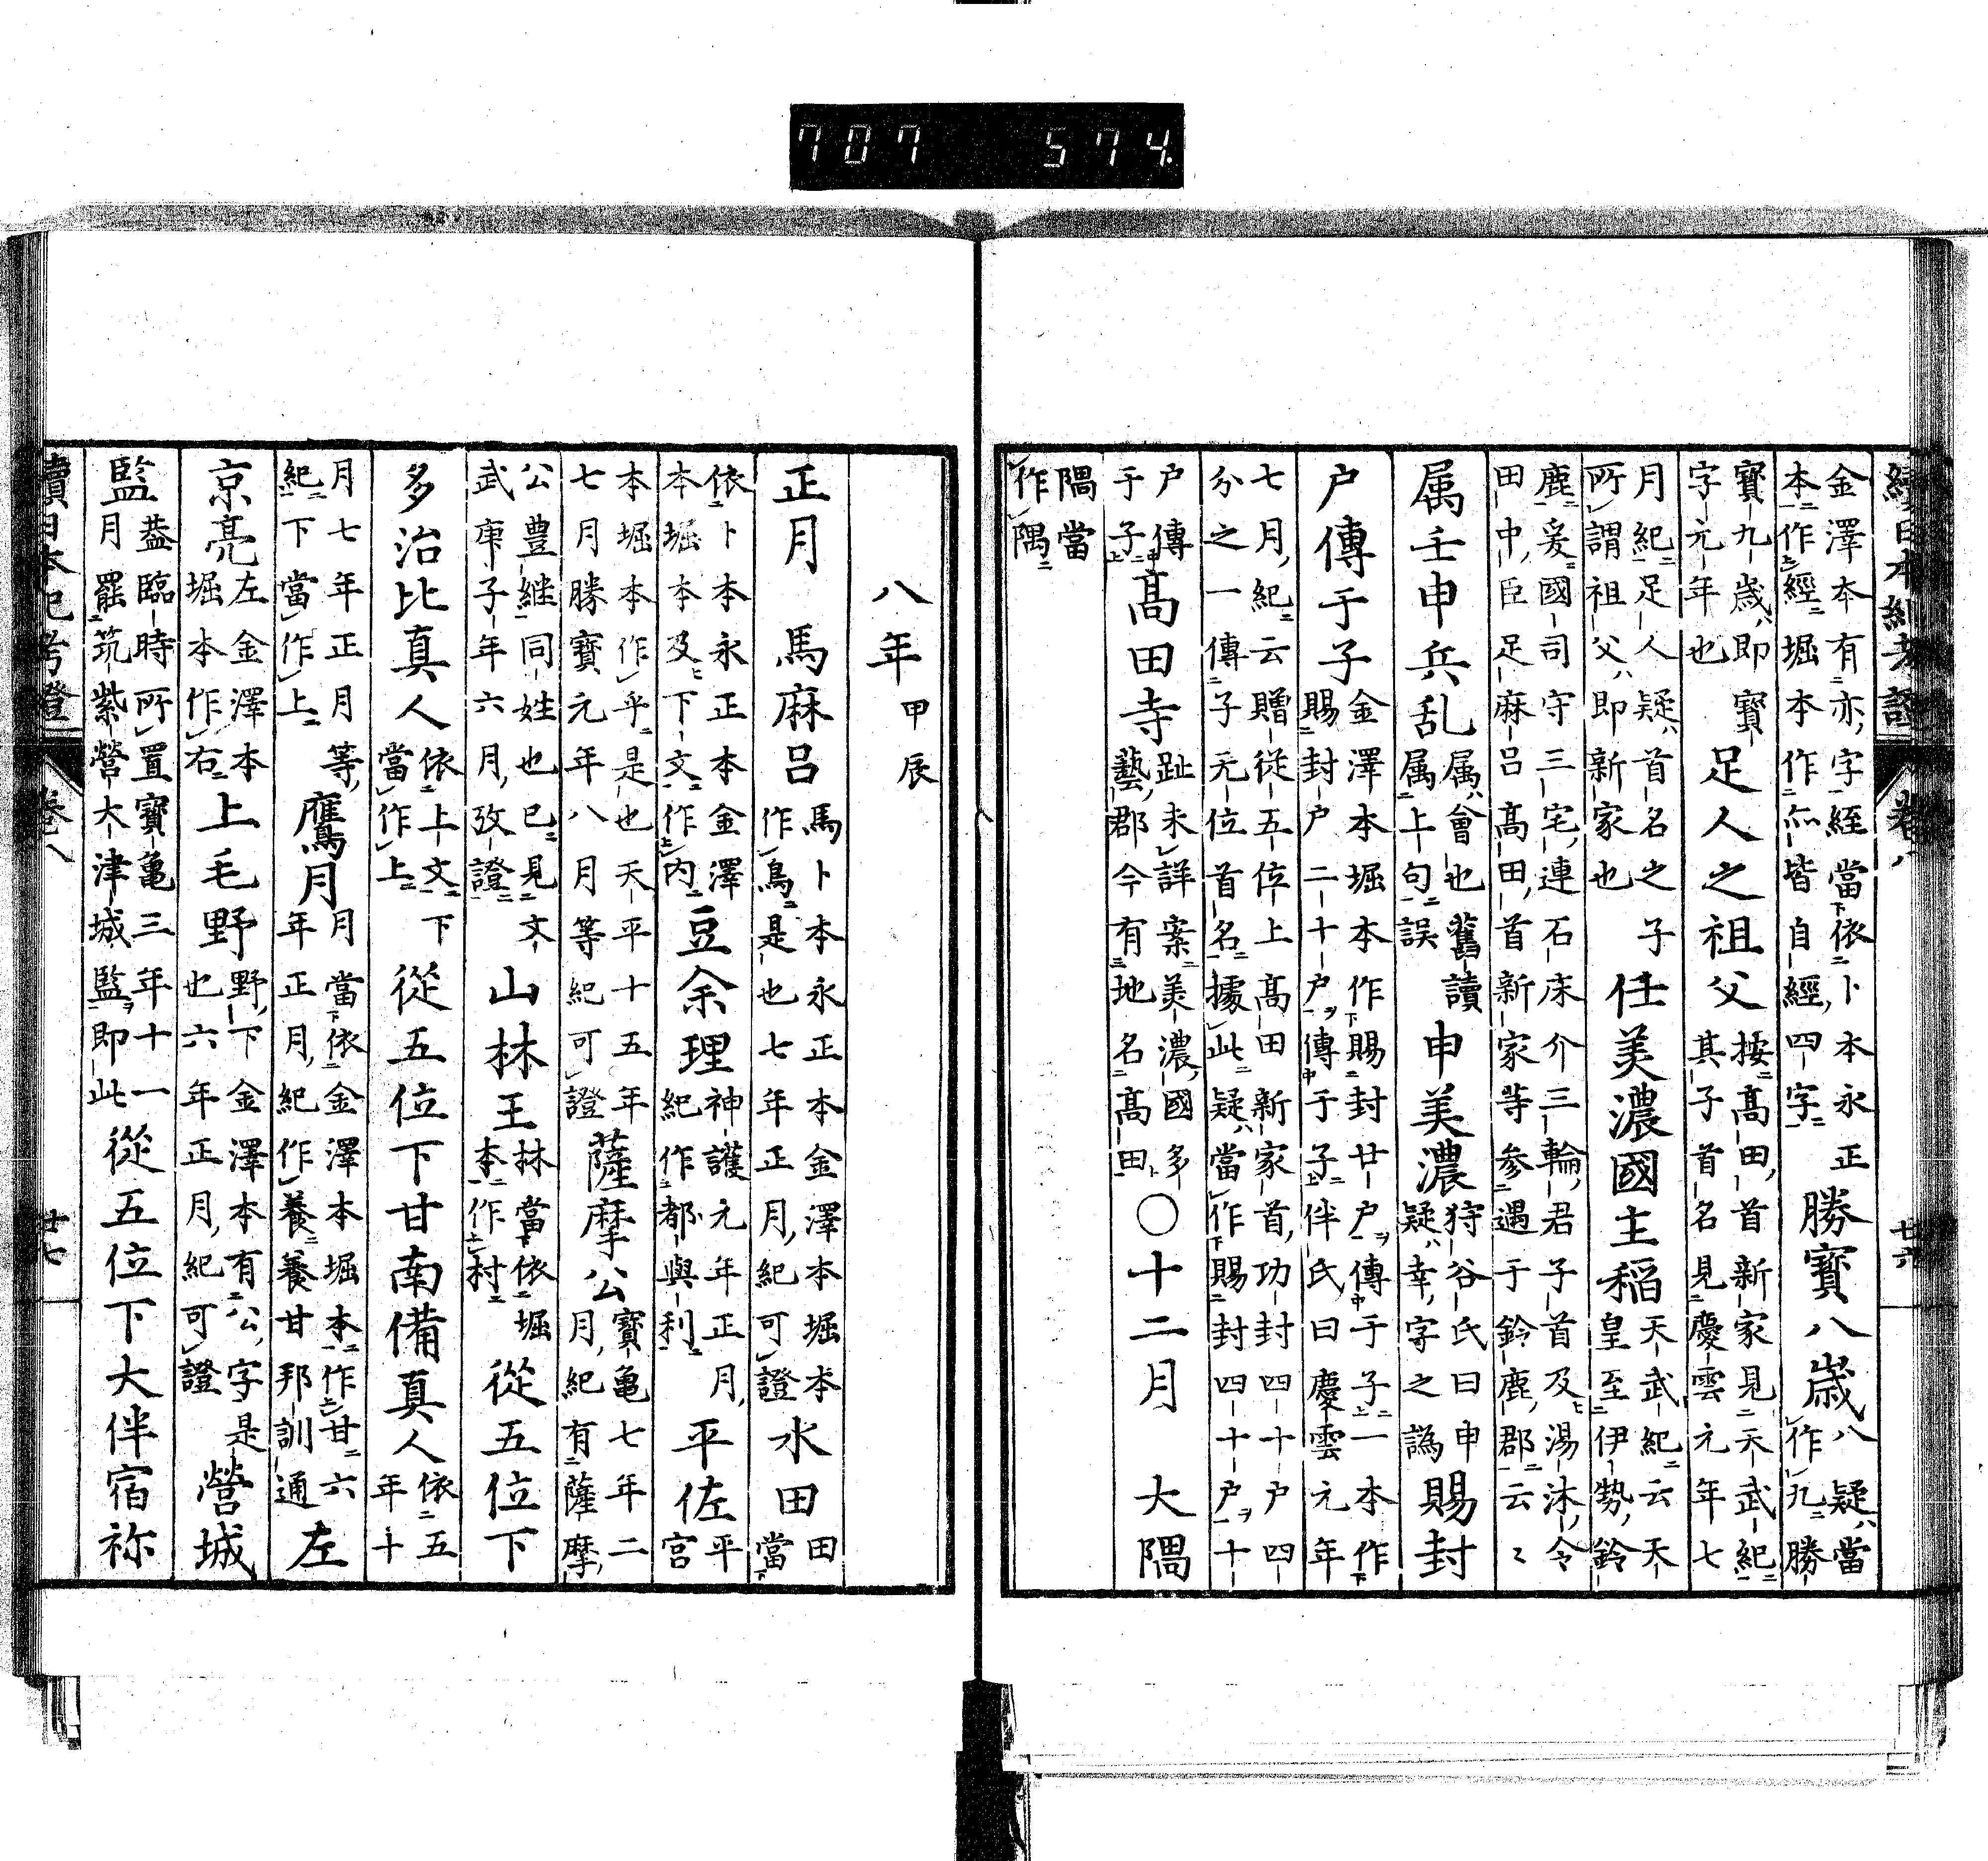 續日本紀考證 卷八 廿六
金澤本有亦字經當依卜本永正
本作經堀本作亦皆自經四字
勝寶八歲
八疑當
作九勝
寶九歲即寶
字元年也
足人之祖父
按高田首新家見天武紀
其子首名見慶雲元年七
月紀足人疑首名之子
所謂祖父即新家也
任美濃國主稻
天武紀云天
皇至伊勢鈴
鹿爰國司守三宅連石床介三輪君子首及湯沐令
田中臣足麻呂高田首新家等參遇于鈴鹿郡云〻
属壬申兵乱
属會也舊讀
属上句誤
申美濃
狩谷氏曰申
疑幸字之譌
賜封
户傳于子
金澤本堀本作賜封廿户傳于子一本作
賜封户二十户傳于子伴氏曰慶雲元年
七月紀云贈從五位上高田新家首功封四十户四
分之一傳子元位首名據此疑當作賜封四十户十
户傳
于子
高田寺
趾未詳案美濃國多
藝郡今有地名高田
〇十二月 大隅
隅當
作隅
八年 甲辰
正月 馬麻呂
馬卜本永正本金澤本堀本
作鳥是也七年正月紀可證
水田
田
當
依卜本永正本金澤
本堀本及下文作内
豆余理
神護元年正月
紀作都與利
平佐
平
宮
本堀本作乎是也天平十五年
七月勝寶元年八月等紀可證
薩摩公
寶亀七年二
月紀有薩摩
公豊継同姓也已見文
武庚子年六月攷證
山林王
林當依堀
本作村
從五位下
多治比真人
依上文下
當作上
從五位下甘南備真人
依五
年十
月七年正月等
紀下當作上
鷹月
月當依金澤本堀本作甘六
年正月紀作養養甘邦訓通
左
京亮
左金澤本
堀本作右
上毛野
野下金澤本有公字是
也六年正月紀可證
營城
監
葢臨時所置寶亀三年十一
月罷筑紫營大津城監即此
從五位下大伴宿祢
續日本紀考證 卷八 廿七
707 574.